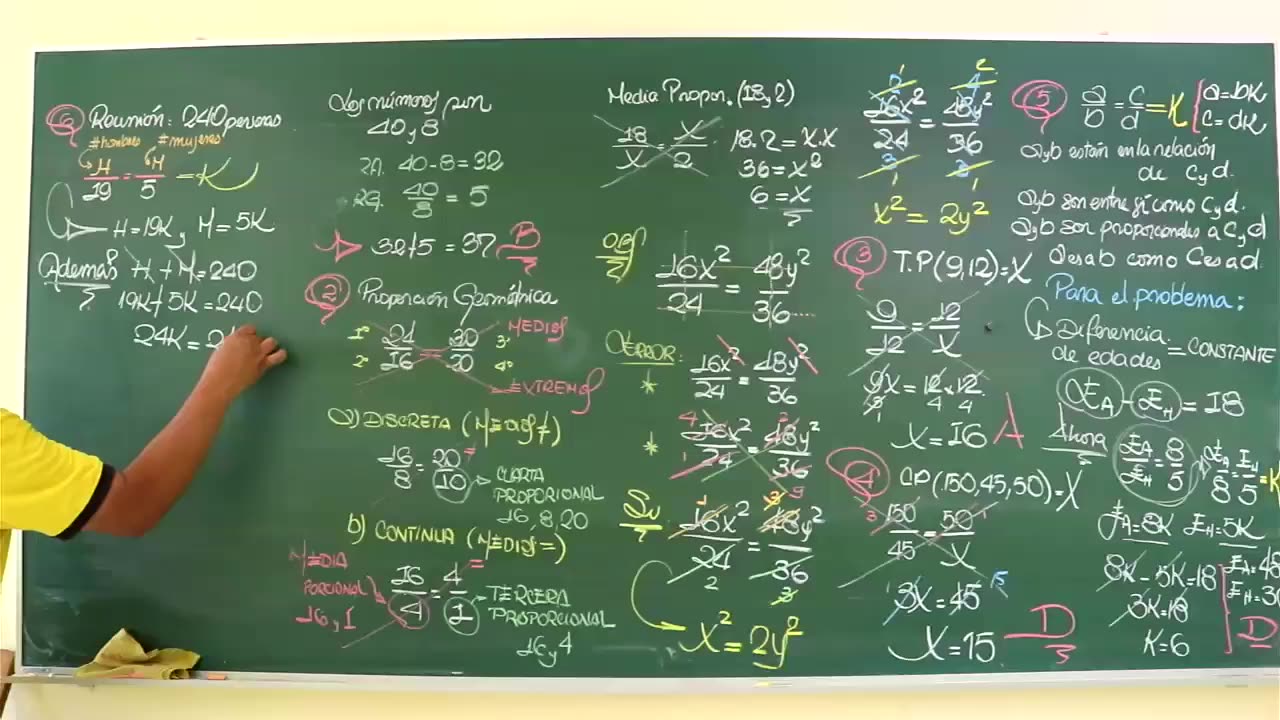 6 Reunión: 240 personas
#hombres #mujeres
H/19 = M/5 = K
H=19K y M=5K
Además H + M = 240
19K + 5K = 240
24K = 2
Los números son
40 y 8
40-8=32
40/8 = 5
32+5 = 37 B
2 Proporción Geométrica
1° 24/16 = 30/20 3° MEDIOS
2° 4° EXTREMOS
a) DISCRETA (MEDIOS ≠)
16/8 = 20/10 → CUARTA
PROPORIONAL
16, 8, 20
b) CONTÍNUA (MEDIOS =)
MEDIA
PORCIONAL
16 y 1
16/4 = 4/1 → TERCERA
PROPORCIONAL
16 y 4
Media Propor. (18, 2)
18/X = X/2
18.2 = X.X
36 = X²
6 = X
OBS
16x²/24 = 48y²/36
ERROR:
* 16x²/24 = 48y²/36
* 16x²/24 = 48y²/36
16x²/24 = 48y²/36
X² = 2y²
16x²/24 = 48y²/36
x² = 2y²
3 T.P (9,12) = X
9/12 = 12/X
9X = 12 . 12
X = 16 A
4 CP (150, 45, 50) = X
150/45 = 50/X
3X = 45
X = 15 D
5 a/b = c/d = K
a=bK
c=dK
a y b están en la relación
de c y d.
a y b son entre sí como c y d.
a y b son proporcionales a c y d
a es a b como c es a d.
Para el problema:
Diferencia
de edades = CONSTANTE
EA - EH = 18
Ahora EA/EH = 8/5
EA/8 = EH/5 = K
EA=8K EH=5K
8K - 5K = 18
3K = 18
K = 6
EA=48
EH=30
D